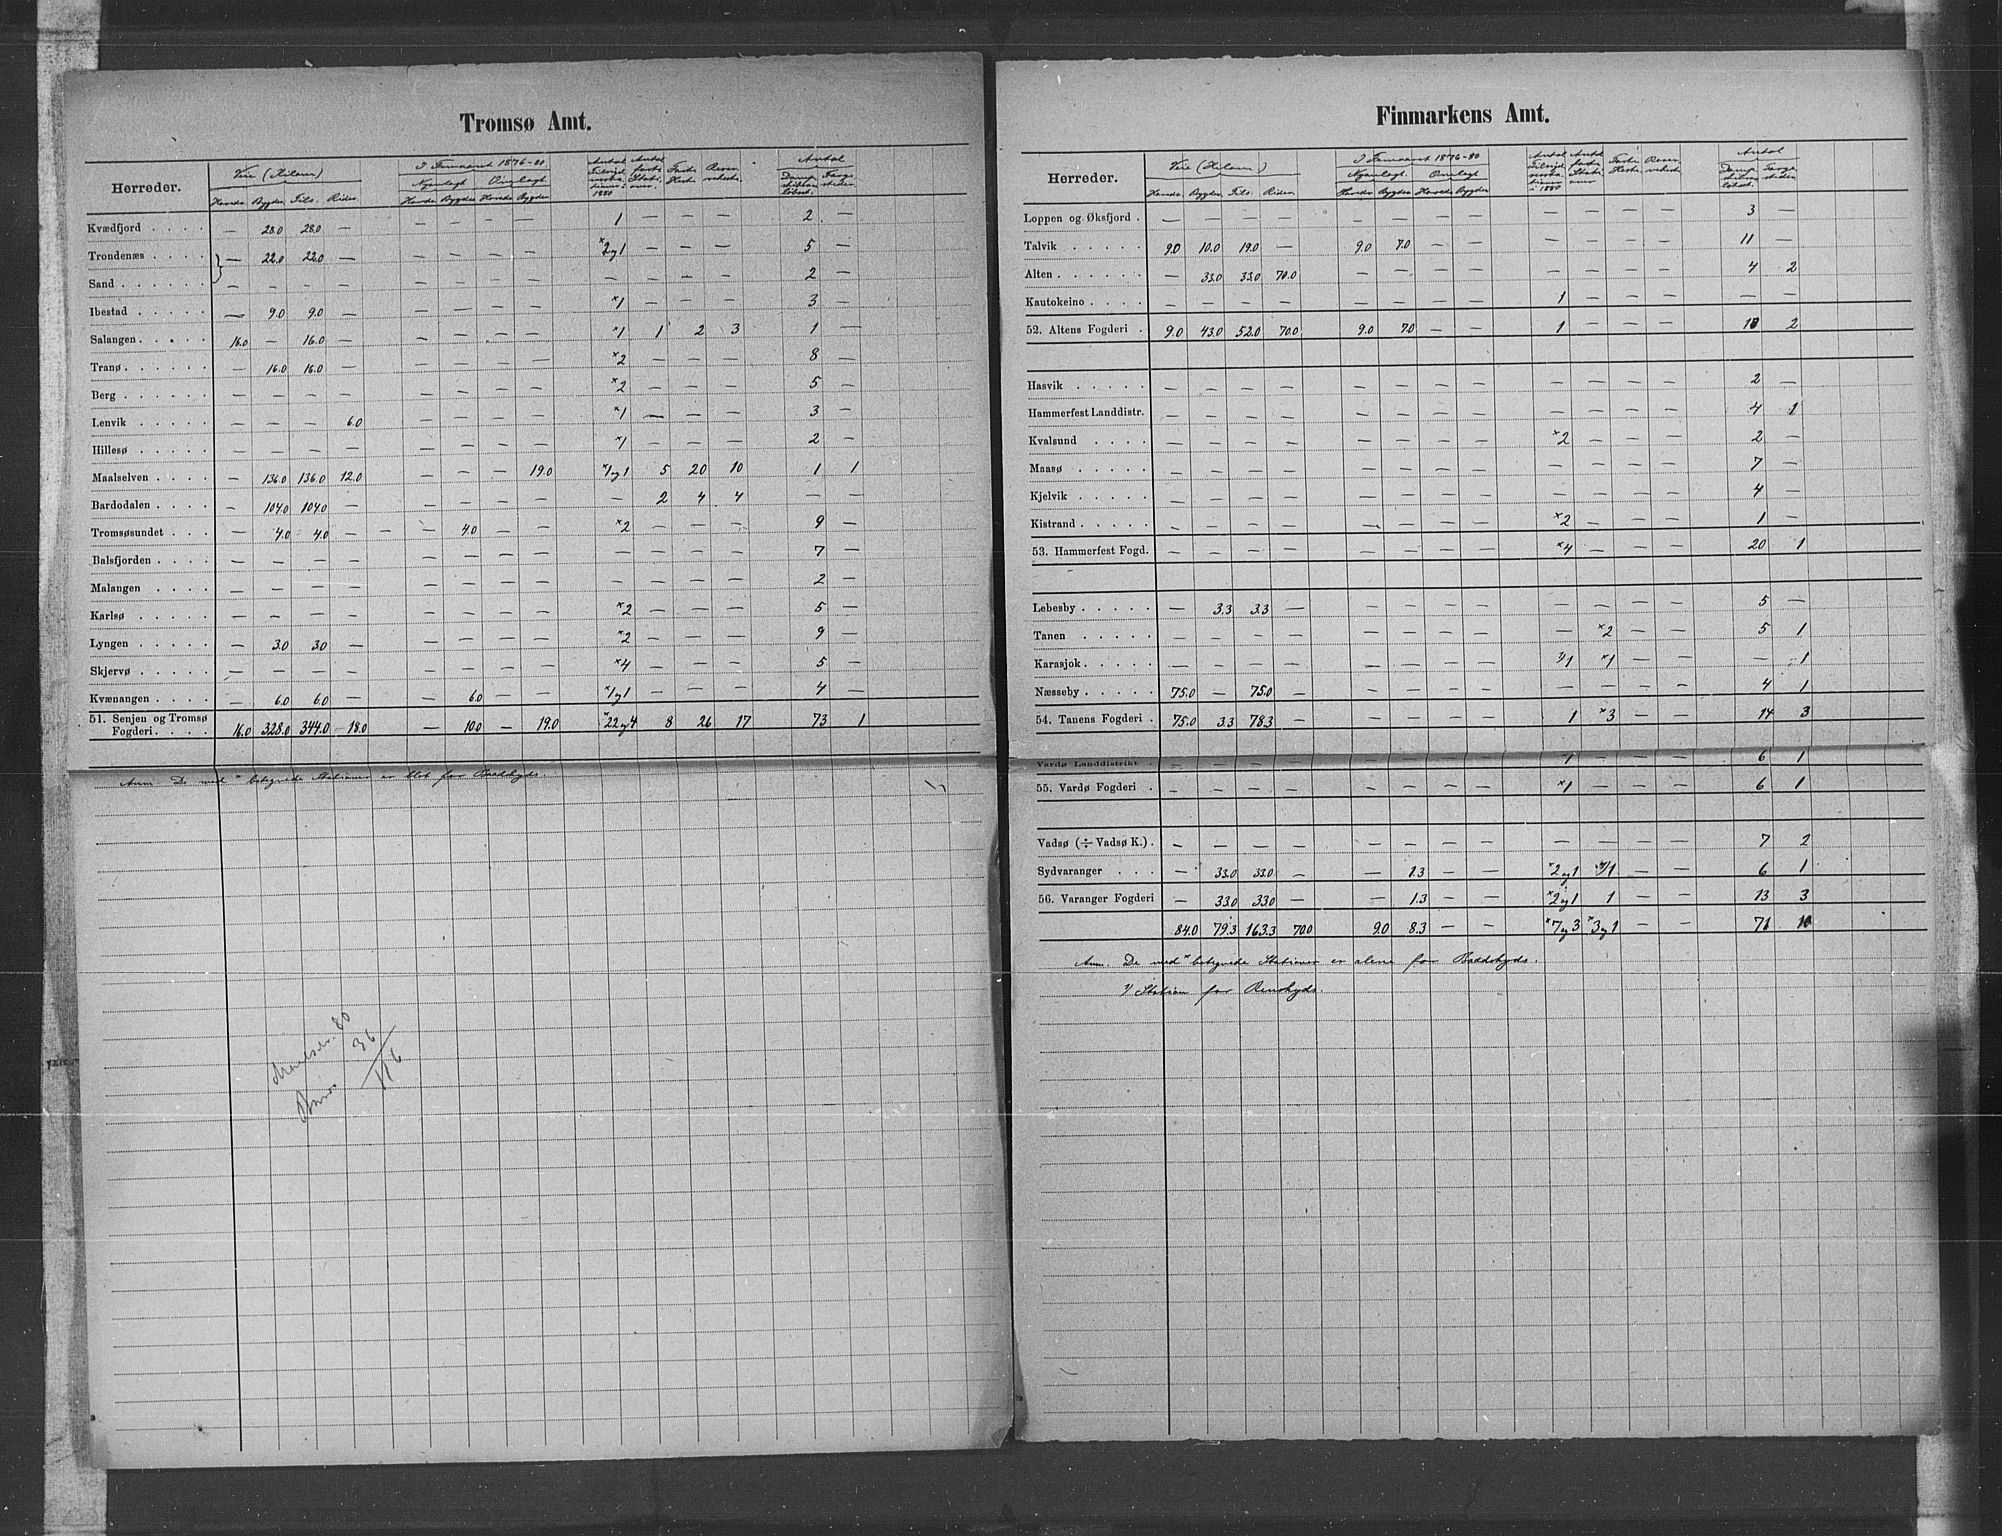 Tromsø Amt.
Herreder. Veie (Kilom) I Femaaret 1876-80 Antal Tilsigelsesstationer i 1880 Antal faste Stationer Faste Heste Reserveheste Antal
Nyanlagt Omlagt
Hoveds. Bygdes. Tils. Rides. Hovds. Bygdes. Hovds. Bygdes. Dampskibsanløbsst. Færgesteder
Kvædfjord . . . . — 28.0 28.0 — — — — — 1 — — — 2 —
Trondenæs . . . . — 22.0 22.0 — — — — — ×2 og 1 — — — 5 —
Sand . . . . . . — — — — — — — — — — — — 2 —
Ibestad . . . . . — 9.0 9.0 — — — — — ×1 — — — 3 —
Salangen . . . . . 16.0 — 16.0 — — — — — ×1 1 2 3 1 —
Tranø . . . . . . — 16.0 16.0 — — — — — ×2 — — — 8 —
Berg . . . . . . — — — — — — — — ×2 — — — 5 —
Lenvik . . . . . — — — 6.0 — — — — ×1 — — — 3 —
Hillesø . . . . . — — — — — — — — ×1 — — — 2 —
Maalselven . . . . — 136.0 136.0 12.0 — — — 19.0 ×1 og 1 5 20 10 1 1
Bardodalen . . . . — 104.0 104.0 — — — — — — 2 4 4 — —
Tromsøsundet . . . — 4.0 4.0 — — 4.0 — — ×2 — — — 9 —
Balsfjorden . . . . — — — — — — — — — — — — 7 —
Malangen . . . . — — — — — — — — — — — — 2 —
Karlsø . . . . . — — — — — — — — ×2 — — — 5 —
Lyngen . . . . . — 3.0 3.0 — — — — — ×2 — — — 9 —
Skjervø . . . . . — — — — — — — — ×4 — — — 5 —
Kvænangen . . . . — 6.0 6.0 — — 6.0 — — ×1 og 1 — — — 4 —
51. Senjen og Tromsø
Fogderi . . . . 16.0 328.0 344.0 18.0 — 10.0 — 19.0 ×22 og 4 8 26 17 73 1
Anm. De med × betegnede Stationer er blot for Baadskyds.
Maalselv. 80
36
116
Finmarkens Amt.
Herreder. Veie (Kilom) I Femaaret 1876-80 Antal Tilsigelsesstationer i 1880 Antal faste Stationer Faste Heste Reserveheste Antal
Nyanlagt. Omlagt.
Hoveds. Bygdes. Tils. Rides. Hovds. Bygdes. Hovds. Bygdes. Dampskibsanløbsst. Færgesteder
Loppen og Øksfjord . — — — — — — — — — — — — 3 —
Talvik . . . . . 9.0 10.0 19.0 — 9.0 7.0 — — — — — — 11 —
Alten . . . . . . — 33.0 33.0 70.0 — — — — — — — — 4 2
Kautokeino . . . . — — — — — — — — 1 — — — — —
52. Altens Fogderi . 9.0 43.0 52.0 70.0 9.0 7.0 — — 1 — — — 18 2
Hasvik . . . . . — — — — — — — — — — — — 2 —
Hammerfest Landdistr. — — — — — — — — — — — — 4 1
Kvalsund . . . . — — — — — — — — ×2 — — — 2 —
Maasø . . . . . — — — — — — — — — — — — 7 —
Kjelvik . . . . . — — — — — — — — — — — — 4 —
Kistrand . . . . . — — — — — — — — ×2 — — — 1 —
53. Hammerfest Fogd. — — — — — — — — ×4 — — — 20 1
Lebesby . . . . . — 3.3 3.3 — — — — — — — — — 5 —
Tanen . . . . . — — — — — — — — — ×2 — — 5 1
Karasjok . . . . . — — — — — — — — ¹⁾1 ×1 — — — 1
Næsseby . . . . . 75.0 — 75.0 — — — — — — — — — 4 1
54. Tanens Fogderi . 75.0 3.3 78.3 — — — — — 1 ×3 — — 14 3
Vardø Landdistrikt . 1 — — — 6 1
55. Vardø Fogderi . — — — — — — — — ×1 — — — 6 1
Vadsø (÷ Vadsø K.) . — — — — — — — — — — — — 7 2
Sydvaranger . . . — 33.0 33.0 — — 1.3 — — ×2 og 1 1 — — 6 1
56. Varanger Fogderi — 33.0 33.0 — — 1.3 — — ×2 og 1 1 — — 13 3
84.0 79.3 163.3 70.0 9.0 8.3 — — ×7 og 3 ×3 og 1 — — 71 10
Anm. De med × betegnede Stationer er alene for Baadskyds.
1) Station for Renskyds.